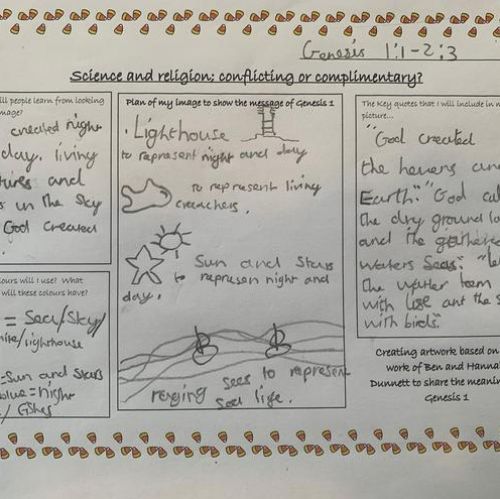 Genesis 1:1-2:3
Science and religion: conflicting or complimentary?
ill people learn from looking
mage?
created night
day. living
tures and
s in the sky
God created
.
colours will I use? What
will these colours have?
= Sea/Sky/
/lighthouse
=Sun and Stars
blue = night
/ Fishes
Plan of my image to show the message of Genesis 1
. Lighthouse
to represent night and day
to represent living
creachers.
Sun and Stars
to represen night and
day.
renging sees to represent
Sea life.
The Key quotes that I will include in m
picture...
"God created
the hevens and
Earth." "God cal
the dry ground la
and the gathere
waters Seas." "le
the watter teem
with lise ant the s
with birds."
Creating artwork based on
work of Ben and Hanna
Dunnett to share the meani
Genesis 1